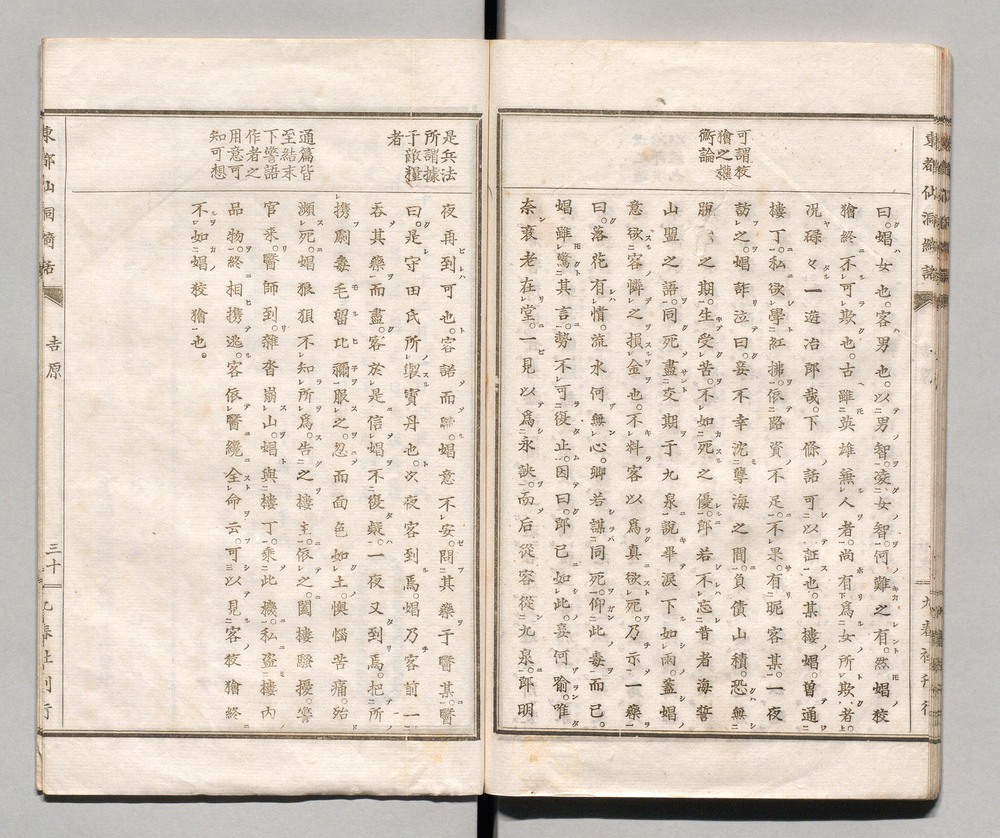 東都仙洞綺話
九春社刊行
可謂狡
獪之權
術論
曰。娼女也。客男也。以男智。凌女智。何難之有。然娼狡
獪終不可欺也。古雖英雄無人者。尚有爲女所欺者。
况碌々一遊冶郎哉。下條話可以証也。某樓娼。曽通
樓丁。私欲學紅拂。依路資不足。不果。有昵客某。一夜
訪之。娼詐泣曰。妾不幸沈孽海之間。負債山積。恐無
脱之期。生受苦。不如死之優。郎若不忘昔者海誓
山盟之語。同死盡交期于九泉。説畢涙下如雨。蓋娼
意欲客憐之損金也。不料客以爲真欲死。乃示一藥
曰。落花有情。流水何無心。卿若謀同死。仰此毒而已。
娼雖驚其言。勢不可復止。因曰。郎已如此。妾何喩。唯
奈衰老在堂。一見以爲永訣。而后從容從九泉。郎明
是兵法
所謂據
于敵糧
者
通篇皆
至結末
下警語
作者之
用意可
知可想
夜再到可也。客諾而歸。娼意不安。問其藥于醫某。醫
曰。是守田氏所製寳丹也。次夜客到焉。娼乃客前一
呑其藥而盡。客於是信娼不復疑。一夜又到焉。把所
携劇毒毛留比禰服之。忽而面色如土。懊惱苦痛。殆
瀕死。娼狼狽不知所爲。告之樓主。依之。闔樓騷擾。警
官来。醫師到。雜沓崩山。娼與樓丁。乘此機。私盗樓内
品物。終相携逃。客依醫纔全命云。可以見客狡獪終
不如娼狡獪也。
東都仙洞綺話
吉原
三十
九春社刊行